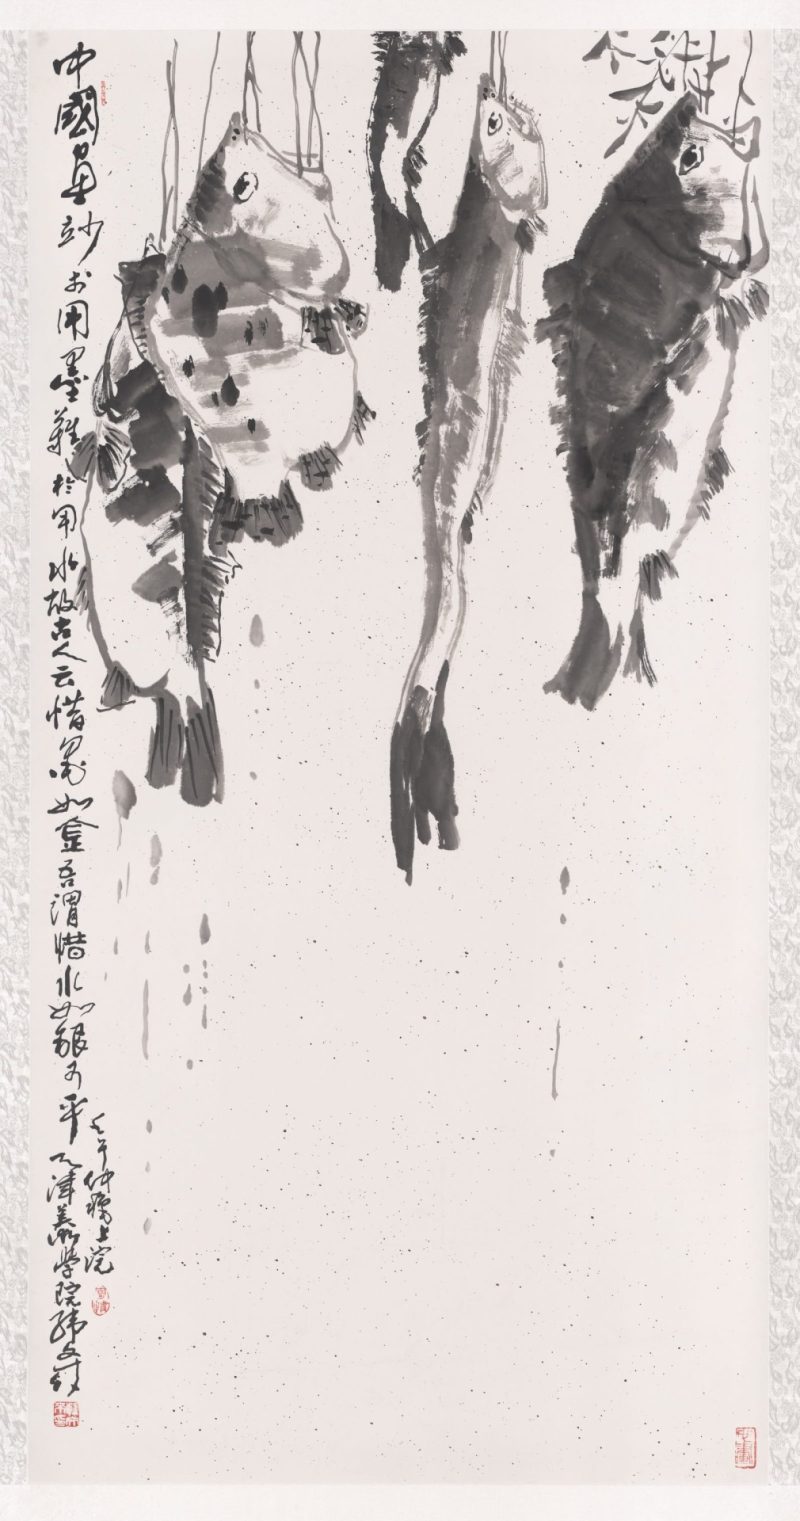 中國畫妙於用墨難於用水故古人云惜墨如金吾謂惜水如銀可乎天津美術學院韓文來
壬午仲秋上浣